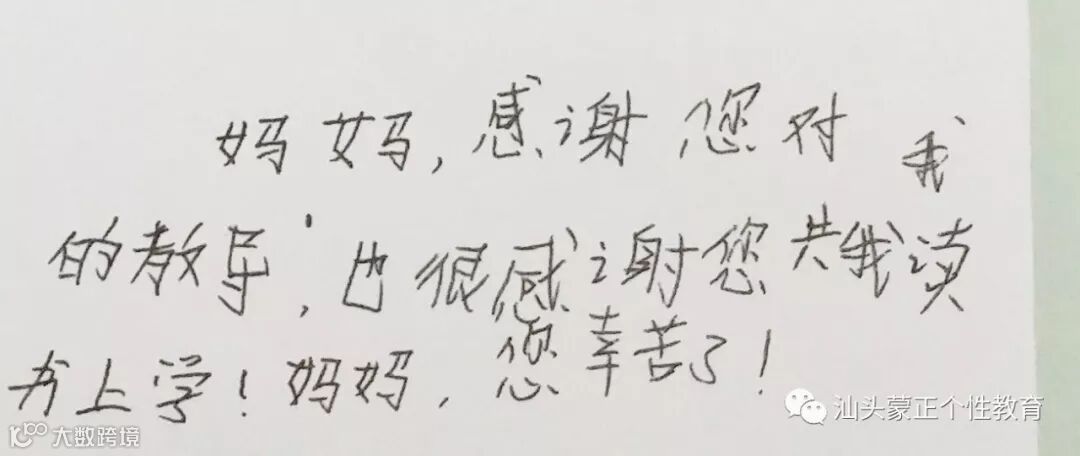 妈妈，感谢您对我
的教导，也很感谢您共我读
书上学！妈妈，您幸苦了！
汕头蒙正个性教育
大数跨境